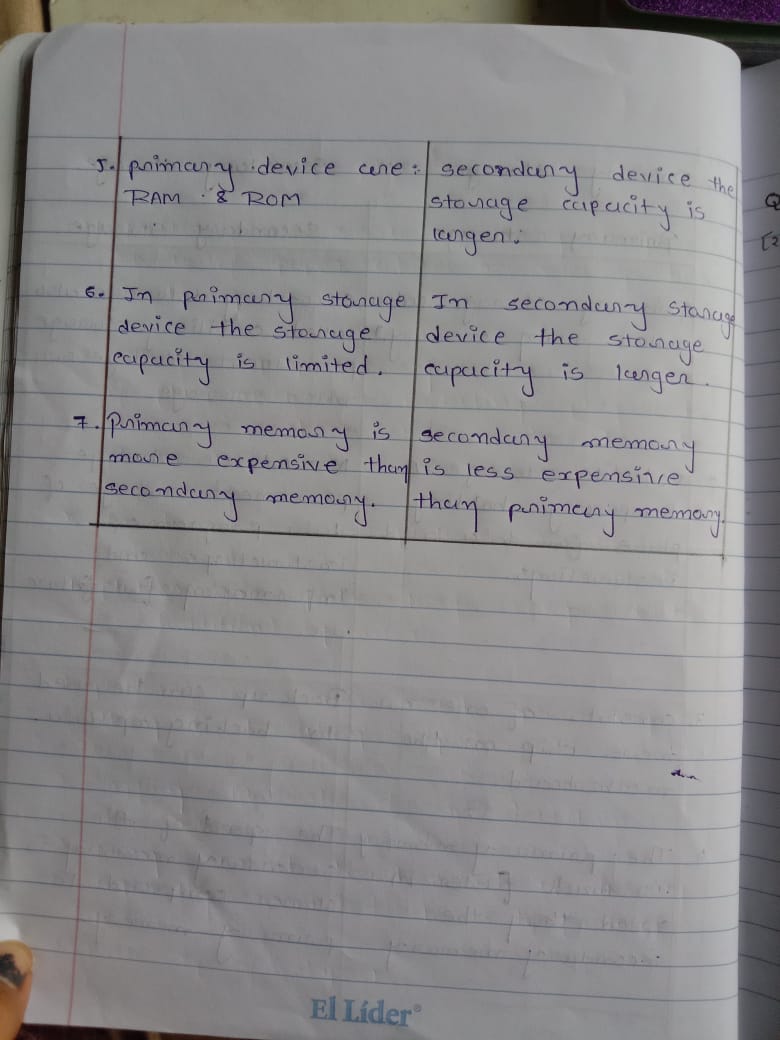 5. primary device are :
RAM & ROM
secondary device the
storage capacity is
larger.
6. In primary storage
device the storage
capacity is limited.
In secondary storage
device the storage
capacity is larger.
7. Primary memory is
more expensive than
secondary memory.
secondary memory
is less expensive
than primary memory.
El Líder®
Q
[2